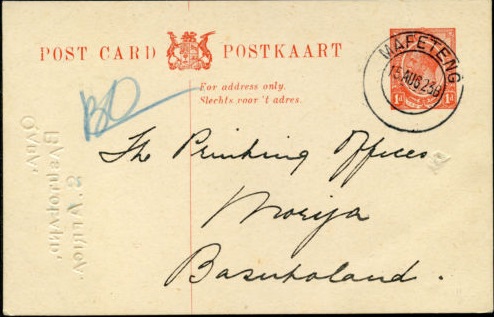 POST CARD POSTKAART
For address only.
Slechts voor 't adres.
MAFETENG
15 AUG 25
1d 1d
BO
The Printing Offices
Morija
Basutoland.